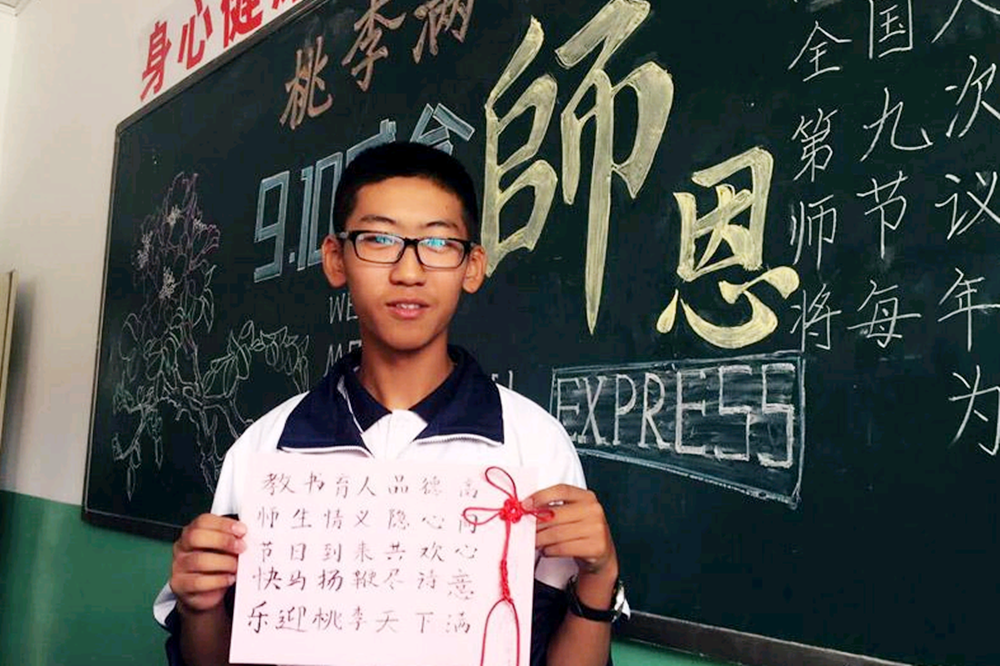 身心健
桃李满
9.10
師恩
WE
ME
EXPRESS
全国人
第九次
师节议
将每年
为
教书育人品德高
师生情义隐心
节日到来共欢心
快马扬鞭尽诗意
乐迎桃李天下满